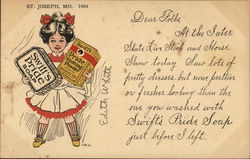 ST. JOSEPH, MO. 1908
Swift's
Pride
Soap
Swift's
Pride
Edith White
Dear Folks
At the Inter
State Live Stock and Horse
Show today. Saw lots of
pretty dresses but none prettier
or fresher looking than the
one you washed with
Swift's Pride Soap
just before I left.